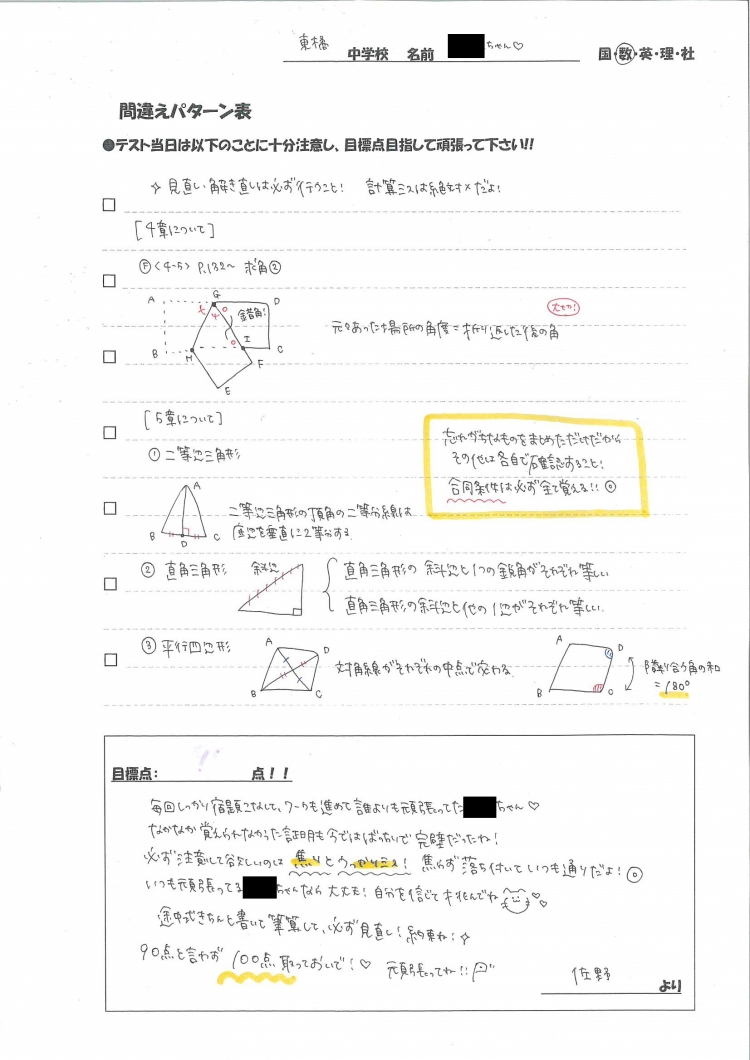 東橘 中学校 名前 ちゃん♡ 国・数・英・理・社
間違えパターン表
●テスト当日は以下のことに十分注意し、目標点目指して頑張って下さい!!
☆ 見直し、解き直しは必ず行うこと! 計算ミスは絶対×だよ!
[4章について]
Ⓕ <4-5> P.132〜 求角②
A G D
t 4 0 錯角!
大切!
元々あった場所の角度=折り返した後の角
0 I
B H C
F
E
[5章について]
① 二等辺三角形
忘れがちなものをまとめただけだから
その他は各自で確認すること!
合同条件は必ず全て覚える!! ◎
A
B D C
二等辺三角形の頂角の二等分線は
底辺を垂直に2等分する。
② 直角三角形 斜辺
直角三角形の斜辺と1つの鋭角がそれぞれ等しい
直角三角形の斜辺と他の1辺がそれぞれ等しい。
③ 平行四辺形
A D
B C
対角線がそれぞれの中点で交わる。
A D
B C
隣り合う角の和
=180°
目標点: 点!!
毎回しっかり宿題こなして、ワークも進めて誰よりも頑張ってた ちゃん♡
なかなか覚えられなかった証明も今ではばっちしで完璧だったね!
必ず注意して欲しいのは 焦りとうっかりミス! 焦らず落ち付いていつも通りだよ! ◎
いつも頑張ってる ちゃんなら大丈夫! 自分を信じて挑んでね ♡♡
途中式きちんと書いて筆算して、必ず見直し! 約束ね! ☆
90点と言わず 100点取っておいで! ♡ 頑張ってね!!
佐野 より